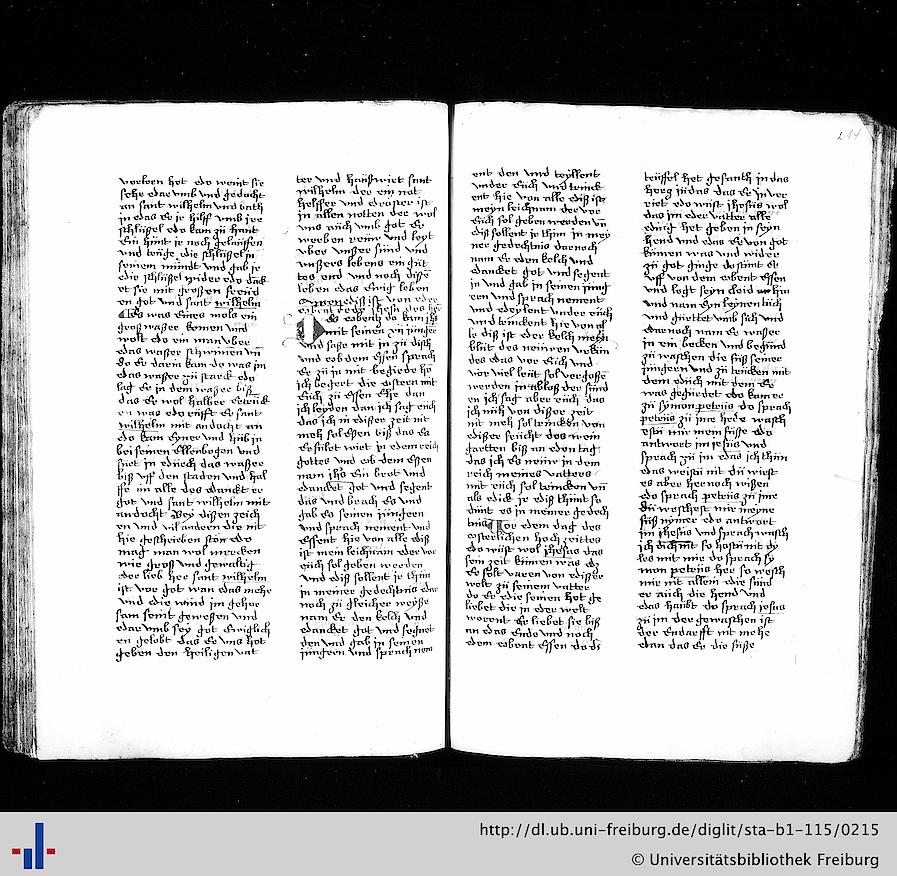 verlorn het do weint sie
sehr dar umb und gedacht
an sant wilhelm und bath
jn das er jr hilff umb jre
schlüssel do kam zü hant
Ein hünt
und trüge die schlüssel jn
seinem mündt und gab jr
die schlüssel wider do danck
et sie mit grossen freüd
en got und sant wilhelm
Es was Eines mols ein
gross wasser komen und
wolt do ein man über
das wasser schwimen un
do Er darin kam do was jm
das wasser zü starck do
lag Er jn dem wasser
das Er wol halber
en was do rüfft Er sant
wilhelm mit andacht an
do kam Eyner und hüb jn
bei seinen Ellenbogen und
fürt jn durch das wasser
biss uff den staden und hal
ff jm alle des danckt er
got und sant wilhelm mit
andacht Bey dissen zeich
en und vil andern die nit
hie geschrieben ston do
mag man wol mercken
wie gross und gewaltig
der lieb her sant wilhelm
ist vor got wan das mehe
und die wind jm gehor
sam seint gewessen und
dar umb sey got Ewiglich
en gelobt das Er uns hot
geben den heiligen vat
ter und haüsswirt sant
wilhelm der ein not
helffer und tröster ist
jn allen notten der wol
uns auch umb got Er
werben reüw und leyt
uber unsser sünd und
unssers lebens ein güt
tes end und noch disse
leben das Ewig leben
Amen diss ist von der
Des obentz do kam jhs
mit seinen xij jünger
und sasse mit jn zü disch
und ob dem Essen sprach
Er zü jn mit begierde ho
jch begert die ostern mit
Eüch zü Essen Ehe dan
jch leyden dan jch sag eüch
das jch jn disser zeit nit
meh sol Essen biss das Es
Erfület wirt jn dem reich
gottes und ob dem Essen
nam jhs Ein brot und
dancket got und segent
das und brach Es und
gab Es seinen jüngern
und sprach nement und
Essent hie von alle diss
ist mein leichnam der vor
eüch sol geben werden
und diss sollent jr thün
jn meiner gedechtnis dar
noch zü gleicher weysse
nam Er den kelch und
dancket got und segnet
den und gab jn seinen
jüngern und sprach nem
ent den und teyllent
under Eüch und trinck
ent hie von alle diss ist
meyn leichnam der vor
Eüch sol geben werden un
diss sollent jr thün jn mey
ner gedechtnis darnoch
nam Er den kelch und
dancket got und segent
jn und gab jn seinen jüng
ern und sprach nement
und deylent under eüch
und trinckent hie von al
le diss ist der kelch meyn
blüt des neüwen urkün
des das vor Eüch und
vor viel leüt sol vergosse
werden jn abloss der sünd
en jch sag aber eüch das
jch müh von disser zeit
nit meh sol trincken von
disser frücht des wein
garten biss an den tag
das jch Es neüw jn dem
reich meines vatters
mit eüch sol trincken un
als dick jr diss thünt so
dünt es jn meiner gedech
tnis Vor dem dag des
osterlichen hoch zeittes
do wüst wol jhesus das
sein zeit kümen was das
Er solt varen von disser
welt zü seinem vatter
do Er die seinen hot ge
liebet die jn der welt
worent Er liebet sie biss
an das Ende und noch
dem obent Essen do d
teüffel het gesanth jn das
herg jüdas das Er jn ver
riet do wist jhesus wol
das jm der vatter alle
ding het geben jn seyn
hend und das Er von got
kümen was und wider
zü got ginge do stünt Er
uff von dem obent Essen
und legt seyn cleid hin
und nam Eyn leynen düch
und gürttet umb sich und
darnoch nam Er wasser
jn ein becken und begünd
zü waschen die füss seiner
jüngern und zü trücken mit
dem düch mit dem Er
was gegürdet do kam er
zü symon petrus do sprach
petrus zü jme here wasch
estü mir mein füsse do
antwort jm jesus und
sprach zü jm das jch thün
das weistü nit dü wirst
es aber her noch wissen
do sprach petrus zü jme
dü weschest mir meyne
füss nymer do antwort
jm jhesus und sprach wasch
jch dich nit so hostü nit dy
les mit mir do sprach sy
mon petrus her so wesch
mir nit allein die füss
er auch die hend und
das haübt do sprach jesus
zü jm der gewaschen ist
der Endarfft nit mehe
dan das Er die füsse
214
http://dl.ub.uni-freiburg.de/diglit/sta-b1-115/0215
© Universitätsbibliothek Freiburg